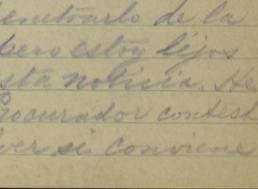 penetrarlo de la
pero estoy lejos
esta noticia. He
procurador contest
ver si conviene